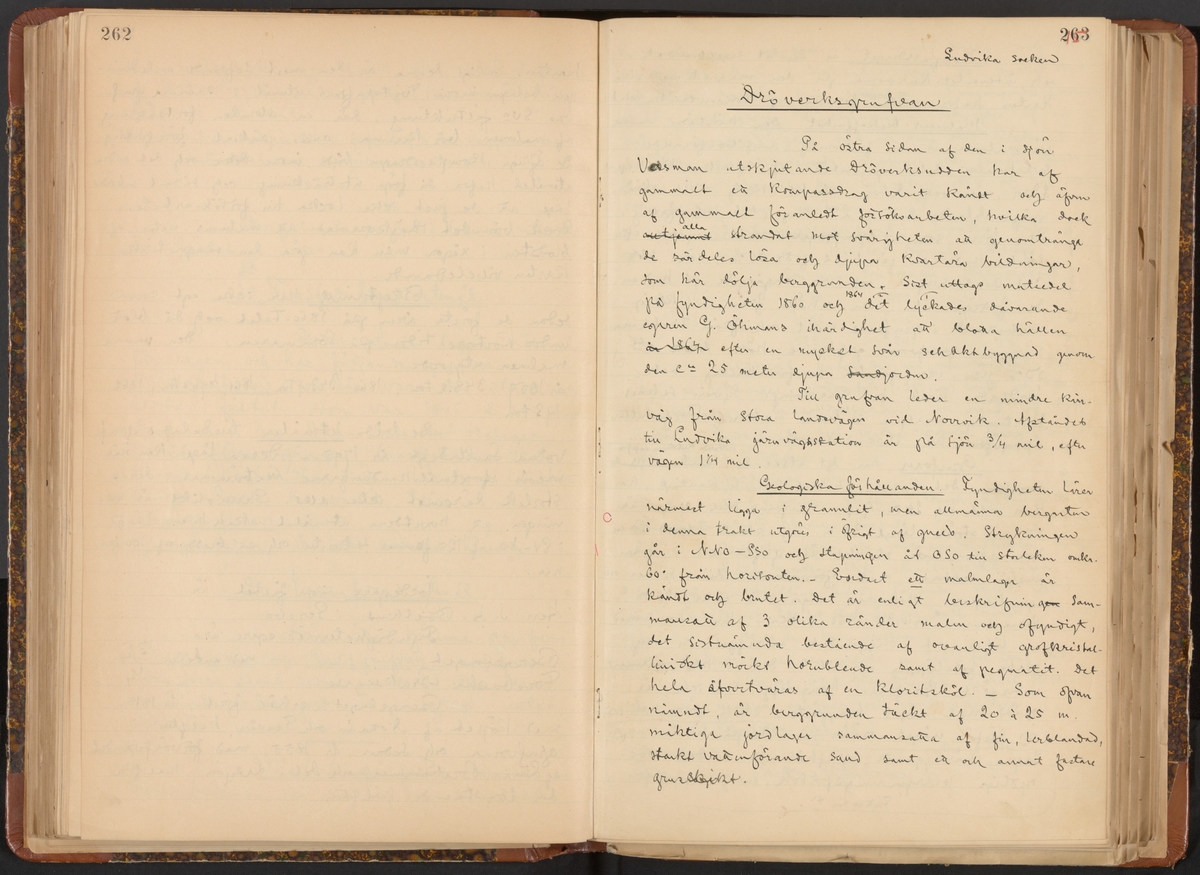 262
263
Ludvika socken
Dröverksgrufvan
På östra sidan af den i sjön
Väsman utskjutande Dröverksudden har af
gammalt ett kompassdrag varit kändt och äfven
af gammalt föranledt försöksarbeten, hvilka dock
alla strandat mot svårigheten att genomtränga
de särdeles lösa och djupa kvartära bildningar,
som här dölja berggrunden. Sist uttogs mutsedel
på fyndigheten 1860 och 1864 det lyckades dåvarande
egaren G. Öhmans ihärdighet att blotta hällen
i 1864 efter en mycket svår schaktbyggnad genom
den ca 25 meter djupa Sandjorden.
Till grufvan leder en mindre kör-
väg från stora landsvägen vid Norrvik. Afståndet
till Ludvika järnvägsstation är på sjön 3/4 mil, efter
vägen 1 1/4 mil.
Geologiska förhållanden. Fyndigheten lärer
närmast ligga i granulit, men allmänna bergarten
i denna trakt utgöres i öfrigt af gneis. Strykningen
går i NNO-SSO och stupningen åt OSO till storleken omkr.
60° från horisonten. - Endast ett malmlager är
kändt och brutet. Det är enligt beskrifning sam-
mansatt af 3 olika ränder malm och ofyndigt,
det sistnämnda bestående af ovanligt grofkristal-
liniskt mörkt hornblende samt af pegmatit. Det
hela åfvertväras af en kloritsköl. - Som ofvan
nämndt, är berggrunden täckt af 20 à 25 m.
mäktiga jordlager sammansatta af fin, lerblandad,
starkt vattenförande sand samt ett och annat fastare
grusskikt.